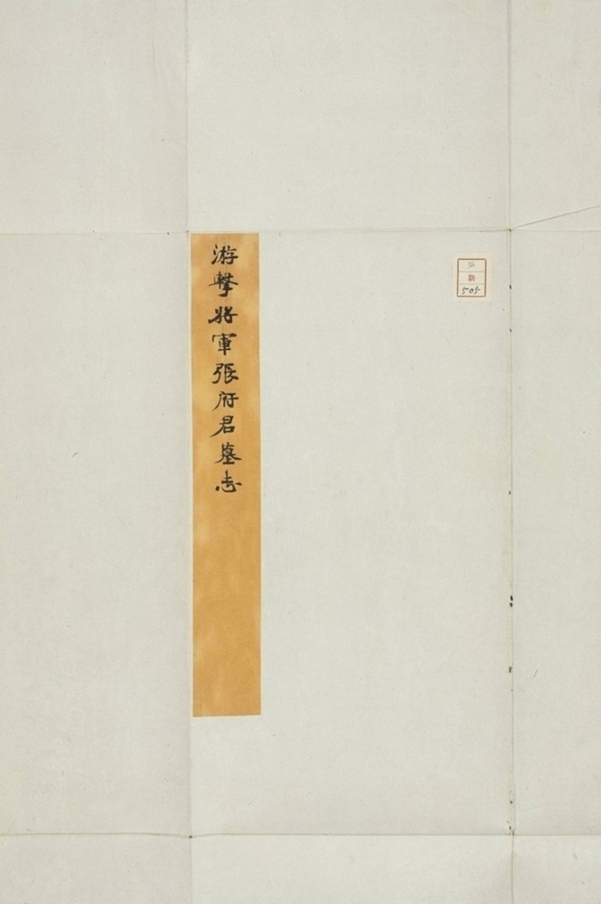 游擊將軍張府君墓志
505